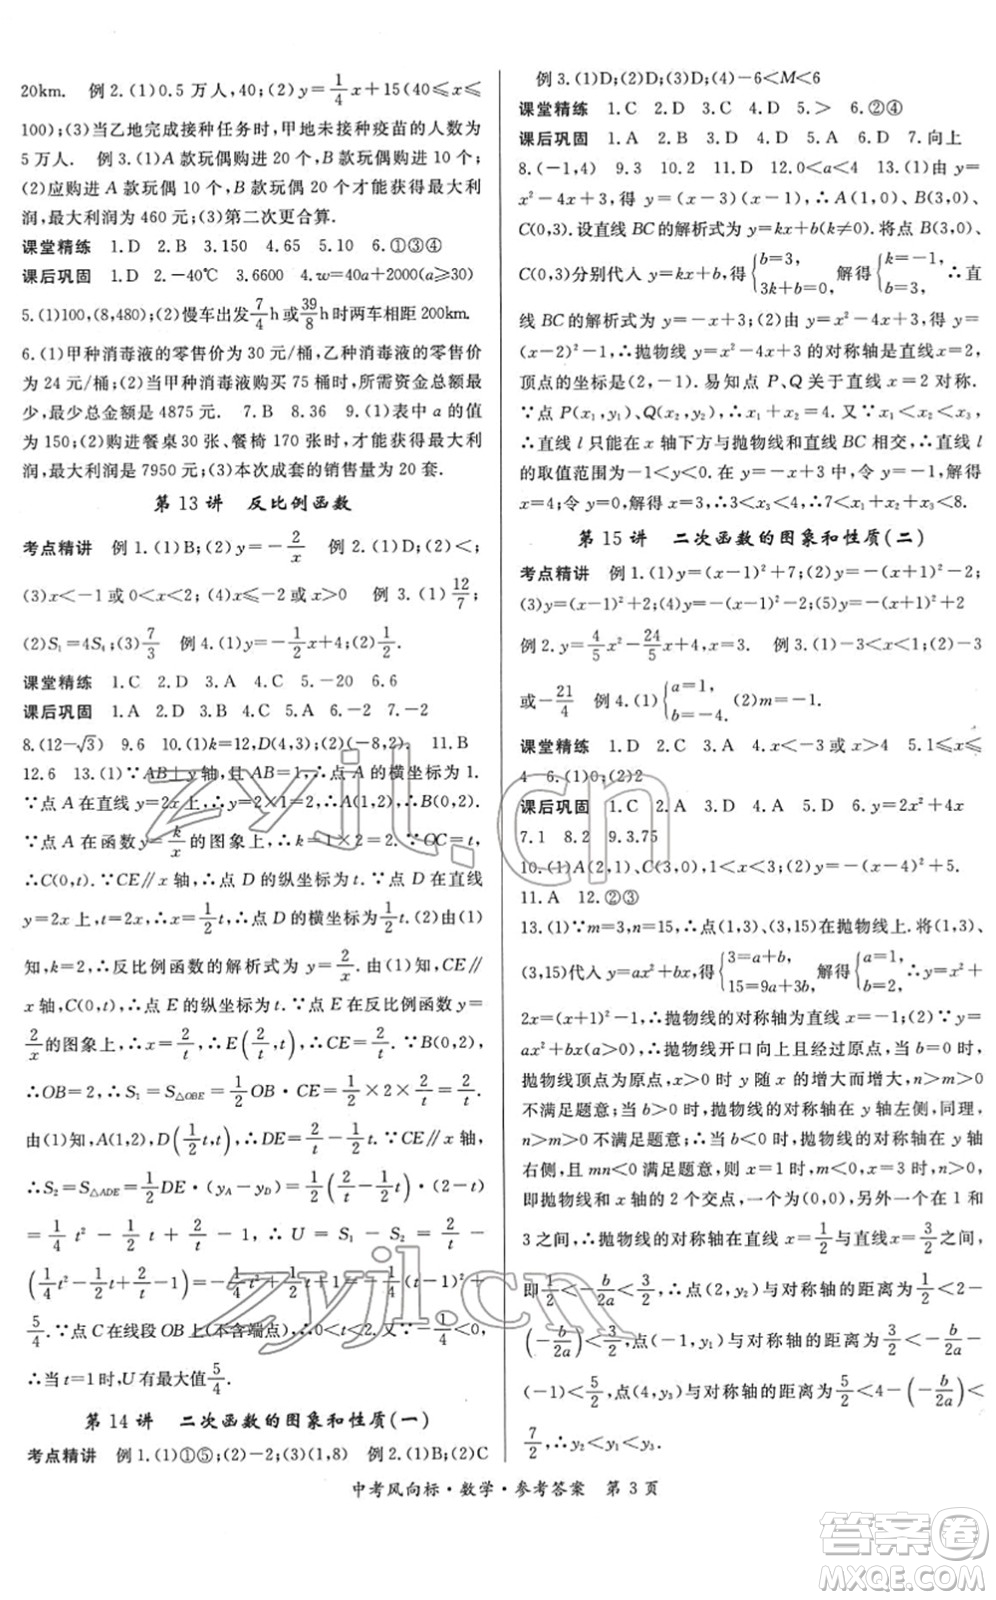 20km.　例 2. (1)0.5 万人,40;(2)y=1/4x+15(40≤x≤
100);(3)当乙地完成接种任务时,甲地未接种疫苗的人数为
5 万人.　例 3. (1)A 款玩偶购进 20 个,B 款玩偶购进 10 个;
(2)应购进 A 款玩偶 10 个、B 款玩偶 20 个才能获得最大利
润,最大利润为 460 元;(3)第二次更合算.
课堂精练　1. D　2. B　3. 150　4. 65　5. 10　6. ①③④
课后巩固　1. D　2. -40℃　3. 6600　4. w=40a+2000(a≥30)
5. (1)100,(8,480);(2)慢车出发7/4h或39/8h时两车相距 200km.
6. (1)甲种消毒液的零售价为 30 元/桶,乙种消毒液的零售价
为 24 元/桶;(2)当甲种消毒液购买 75 桶时,所需资金总额最
少,最少总金额是 4875 元.　7. B　8. 36　9. (1)表中 a 的值
为 150;(2)购进餐桌 30 张、餐椅 170 张时,才能获得最大利
润,最大利润是 7950 元;(3)本次成套的销售量为 20 套.
第 13 讲　反比例函数
考点精讲　例 1. (1)B;(2)y=-2/x　例 2. (1)D;(2)<;
(3)x<-1 或 0<x<2;(4)x≤-2 或 x>0　例 3. (1)12/7;
(2)S₁=4S₄;(3)7/3　例 4. (1)y=-1/2x+4;(2)1/2.
课堂精练　1. C　2. D　3. A　4. C　5. -20　6. 6
课后巩固　1. A　2. B　3. C　4. C　5. A　6. -2　7. -2
8. (12-√3)　9. 6　10. (1)k=12,D(4,3);(2)(-8,2).　11. B
12. 6　13. (1)∵AB⊥y 轴,且 A 点的横坐标为 1.
∵点 A 在直线 y=2x 上,∴y=2×1=2,∴A(1,2),∴B(0,2).
∵点 A 在函数 y=k/x 的图象上,∴k=1×2=2.∵OC=t,
∴C(0,t).∵CE∥x 轴,∴点 D 的纵坐标为 t.∵点 D 在直线
y=2x 上,t=2x,∴x=1/2t,∴点 D 的横坐标为1/2t.(2)由(1)
知,k=2,∴反比例函数的解析式为 y=2/x.由(1)知,CE∥
x 轴,C(0,t),∴点 E 的纵坐标为 t.∵点 E 在反比例函数 y=
2/x的图象上,∴x=2/t,∴E(2/t,t),∴CE=2/t.∵B(0,2),
∴OB=2,∴S₁=S△OBE=1/2OB·CE=1/2×2×2/t=2/t.
由(1)知,A(1,2),D(1/2t,t),∴DE=2/t-1/2t.∵CE∥x 轴,
∴S₂=S△ADE=1/2DE·(yA-yD)=1/2(2/t-1/2t)·(2-t)
=1/4t²-1/2t+2/t-1.∴U=S₁-S₂=2/t-
(1/4t²-1/2t+2/t-1)=-1/4t²+1/2t+1=-1/4(t-1)²+
5/4.∵点 C 在线段 OB 上(不含端点),∴0<t<2.∵-1/4<0,
∴当 t=1 时,U 有最大值5/4.
第 14 讲　二次函数的图象和性质(一)
考点精讲　例 1. (1)①⑤;(2)-2;(3)(1,8)　例 2. (1)B;(2)C
例 3. (1)D;(2)D;(3)D;(4)-6<M<6
课堂精练　1. C　2. D　3. C　4. D　5. >　6. ②④
课后巩固　1. A　2. B　3. C　4. D　5. A　6. D　7. 向上
8. (-1,4)　9. 3　10. 2　11. D　12. 0<a<4　13. (1)由 y=
x²-4x+3,得 y=(x-3)(x-1),x²-4x+3=0,∴A(1,0),B(3,0),
C(0,3).设直线 BC 的解析式为 y=kx+b(k≠0).将点 B(3,0),
C(0,3)分别代入 y=kx+b,得{b=3, 3k+b=0, 解得{k=-1, b=3, ∴直
线 BC 的解析式为 y=-x+3;(2)由 y=x²-4x+3,得 y=
(x-2)²-1.∴抛物线 y=x²-4x+3 的对称轴是直线x=2,
顶点的坐标是(2,-1).易知点 P、Q 关于直线 x=2 对称.
∵点 P(x₁,y₁)、Q(x₂,y₂),∴x₁+x₂=4.又∵x₁<x₂<x₃,
∴直线 l 只能在 x 轴下方与抛物线和直线 BC 相交,∴直线 l
的取值范围为-1<y<0.在 y=-x+3 中,令 y=-1,解得
x=4;令 y=0,解得 x=3.∴3<x₃<4,∴7<x₁+x₂+x₃<8.
第 15 讲　二次函数的图象和性质(二)
考点精讲　例 1. (1)y=(x-1)²+7;(2)y=-(x+1)²-2;
(3)y=(x-1)²+2;(4)y=(x-1)²-2;(5)y=-(x+1)²+2
例 2. y=4/5x²-24/5x+4;x>3　例 3. (1)-1<x<1;(2)-3
或-21/4　例 4. (1){a=1, b=-4. (2)m=-1.
课堂精练　1. D　2. C　3. A　4. x<-2 或 x>4　5. 1≤x≤
4　6. (1)0;(2)2
课后巩固　1. C　2. A　3. D　4. A　5. D　6. y=2x²+4x
7. 1　8. 2　9. 3.75
10. (1)A(2,1)、C(3,0),1<x<3;(2)y=-(x-4)²+5.
11. A　12. ②③
13. (1)∵m=3,n=15,∴点(1,3)、(3,15)在抛物线上.将(1,3)、
(3,15)代入 y=ax²+bx,得{3=a+b, 15=9a+3b, 解得{a=1, b=2, ∴y=x²+
2x=(x+1)²-1,∴抛物线的对称轴为直线x=-1;(2)∵y=
ax²+bx(a>0),∴抛物线开口向上且经过原点,当 b=0 时,
抛物线顶点为原点,x>0 时 y 随 x 的增大而增大,n>m>0
不满足题意;当 b>0 时,抛物线的对称轴在 y 轴左侧,同理,
n>m>0 不满足题意;∴当 b<0 时,抛物线的对称轴在 y 轴
右侧,且 mn<0 满足题意,即当 x=1 时,m<0,x=3 时,n>0,
即抛物线和 x 轴的 2 个交点,一个为(0,0),另外一个在 1 和
3 之间,∴抛物线的对称轴在直线 x=1/2与直线 x=3/2之间,
即1/2<-b/2a<3/2,∴点(2,y₂)与对称轴的距离为1/2<2-
(-b/2a)<3/2,点(-1,y₁)与对称轴的距离为3/2<-b/2a-
(-1)<5/2,点(4,y₃)与对称轴的距离为5/2<4-(-b/2a)<
7/2,∴y₂<y₁<y₃.
中考风向标·数学·参考答案　第 3 页
zyjl.cn
zyjl.cn
答案卷
MXQE.COM